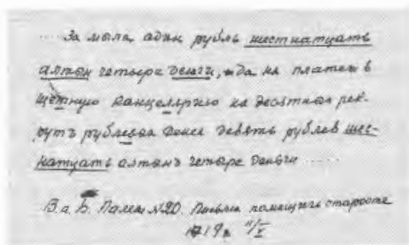 ..... За мыла адин рубль шестнатцать
алтын четыре деньги, да на платеж в
щетную канцелярию на десятков рек-
рутъ рублевая денег девять рублев шес-
натцать алтынъ четыре деньги .....
В. а. к. Палем №20. Письма помещичего старосте
1719г. 11/X